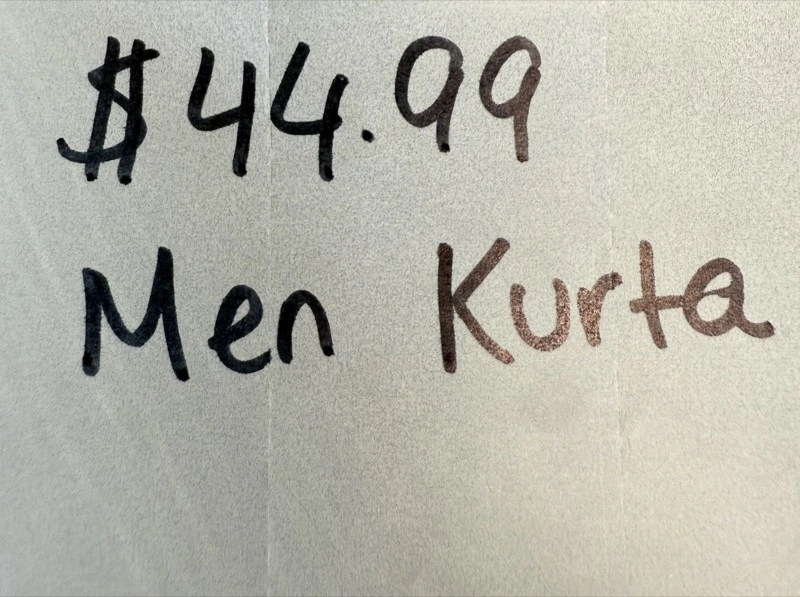 $44.99
Men Kurta